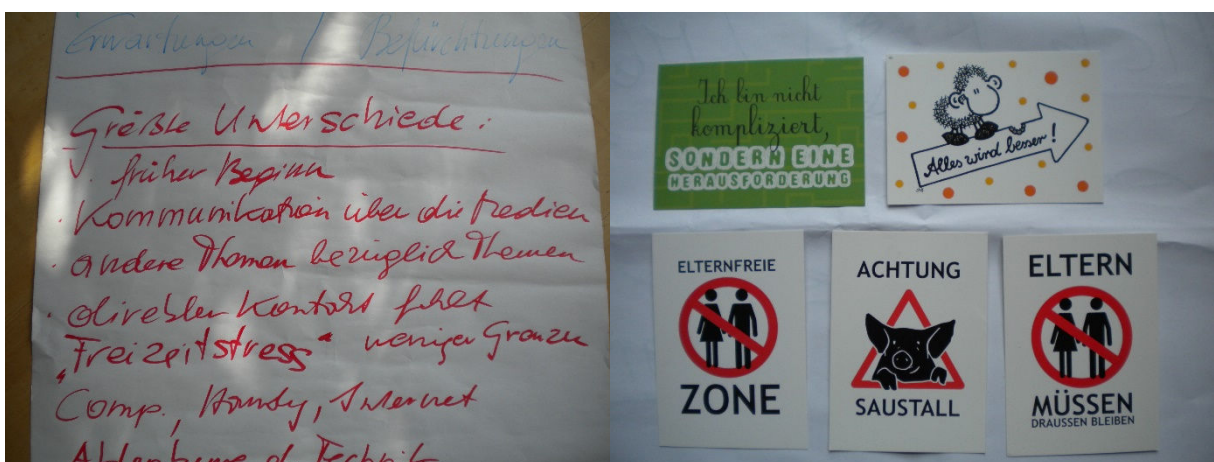 Erwartungen / Befürchtungen
Größte Unterschiede:
· früher Beginn
· Kommunikation über die Medien
· andere Themen bezüglich Themen
· direkter Kontakt fehlt
„Freizeitstress“ weniger Grenzen
Comp., Handy, Internet
Technik
Ich bin nicht
kompliziert,
SONDERN EINE
HERAUSFORDERUNG
Alles wird besser!
ELTERNFREIE
ZONE
ACHTUNG
SAUSTALL
ELTERN
MÜSSEN
DRAUSSEN BLEIBEN